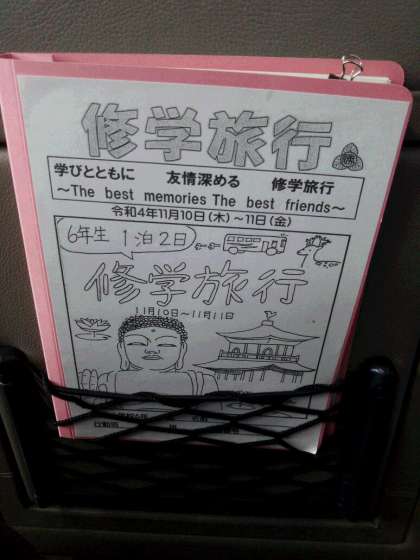 修学旅行
学びとともに 友情深める 修学旅行
～The best memories The best friends～
令和4年11月10日(木)～11日(金)
6年生 1泊2日
修学旅行
11月10日～11月11日
行動班